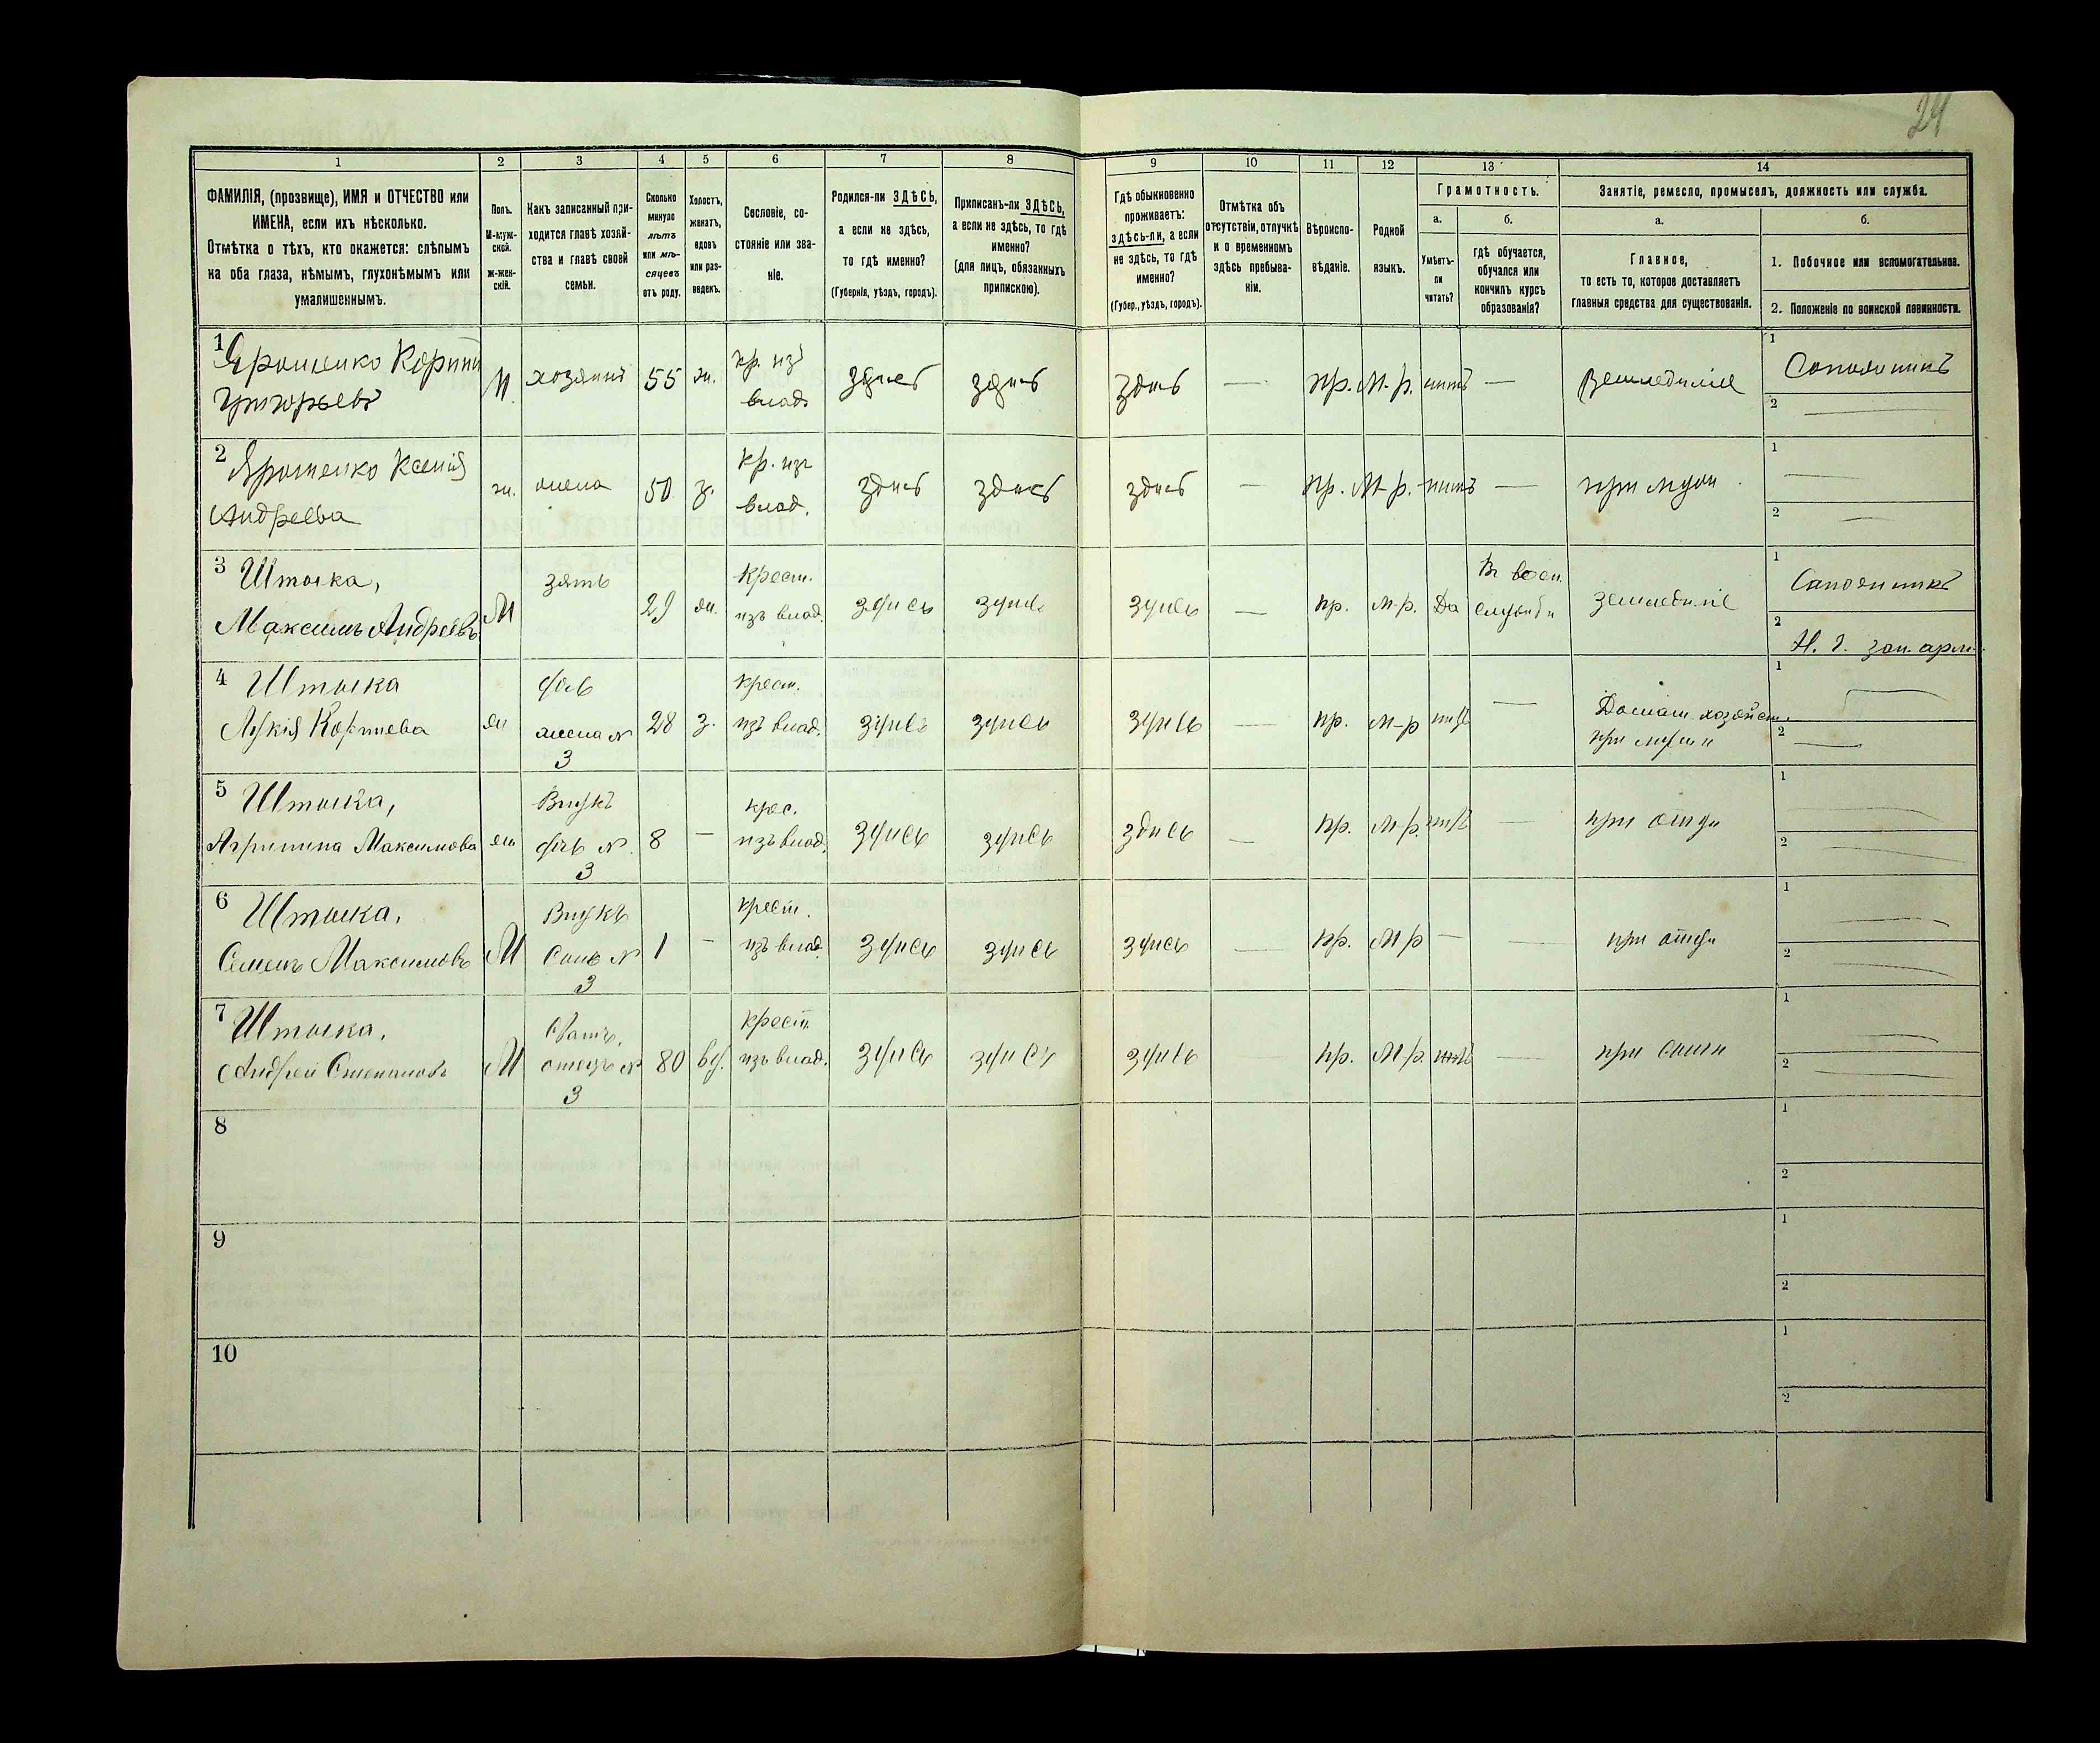 24
1 2 3 4 5 6 7 8 9 10 11 12 13 14
ФАМИЛІЯ, (прозвище), ИМЯ и ОТЧЕСТВО или
ИМЕНА, если ихъ нѣсколько.
Отмѣтка о тѣхъ, кто окажется: слѣпымъ
на оба глаза, нѣмымъ, глухонѣмымъ или
умалишеннымъ.
Полъ.
М-муж-
ской.
ж-жен-
скій.
Какъ записанный при-
ходится главѣ хозяй-
ства и главѣ своей
семьи.
Сколько
минуло
лѣтъ
или мѣ-
сяцевъ
отъ роду.
Холостъ,
женатъ,
вдовъ
или раз-
веденъ.
Сословіе, со-
стояніе или зва-
ніе.
Родился-ли ЗДѢСЬ,
а если не здѣсь,
то гдѣ именно?
(Губернія, уѣздъ, городъ).
Приписанъ-ли ЗДѢСЬ,
а если не здѣсь, то гдѣ
именно?
(для лицъ, обязанныхъ
припискою).
Гдѣ обыкновенно
проживаетъ:
здѣсь-ли, а если
не здѣсь, то гдѣ
именно?
(Губер., уѣздъ, городъ).
Отмѣтка объ
отсутствіи, отлучкѣ
и о временномъ
здѣсь пребыва-
ніи.
Вѣроиспо-
вѣданіе.
Родной
языкъ.
Грамотность.
а. б.
Умѣетъ-
ли
читать?
гдѣ обучается,
обучался или
кончилъ курсъ
образованія?
Занятіе, ремесло, промыселъ, должность или служба.
а. б.
Главное,
то есть то, которое доставляетъ
главныя средства для существованія.
1. Побочное или вспомогательное.
2. Положеніе по воинской повинности.
1 Ярошенко Корній
Григорьевъ
М хозяинъ 55 ж. кр. изъ
влад. здѣсь здѣсь здѣсь — пр. М-р. нѣтъ — Земледѣліе
1 Сапожникъ
2 —
2 Ярошенко Ксенія
Андреева
ж. жена 50 з. кр. изъ
влад. здѣсь здѣсь здѣсь — пр. М-р. нѣтъ — при мужѣ
1 —
2 —
3 Штыка,
Максимъ Андреевъ
М зять 29 ж. Крест.
изъ влад. здѣсь здѣсь здѣсь — пр. м-р. Да Въ воен.
службѣ земледѣліе
1 Сапожникъ
2 Н. ч. зап. арм.
4 Штыка
Корніева
ж дочь
жена №
3 28 з. крест.
изъ влад. здѣсь здѣсь здѣсь — пр. м-р нѣтъ — Домаш. хозяйст.
при мужѣ
1
2 —
5 Штыка,
Агрипина Максимова
ж Внукъ
дочь №
3 8 — крес.
изъ влад. здѣсь здѣсь здѣсь — пр. м-р. нѣтъ — при отцѣ
1 —
2 —
6 Штыка,
Семенъ Максимовъ
М Внукъ
Сынъ №
3 1 — крест.
изъ влад. здѣсь здѣсь здѣсь — пр. М-р — — при отцѣ
1 —
2 —
7 Штыка,
Андрей Степановъ
М Сватъ,
отецъ №
3 80 вд. крест.
изъ влад. здѣсь здѣсь здѣсь пр. М-р. нѣтъ — при сынѣ
1 —
2 —
8
1
2
9
1
2
10
1
2